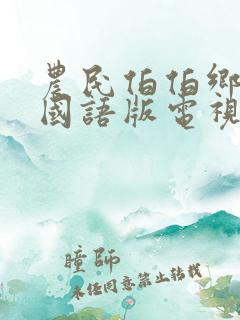 農民伯伯鄉
國語版電視
瞳師
未经同意禁止转载